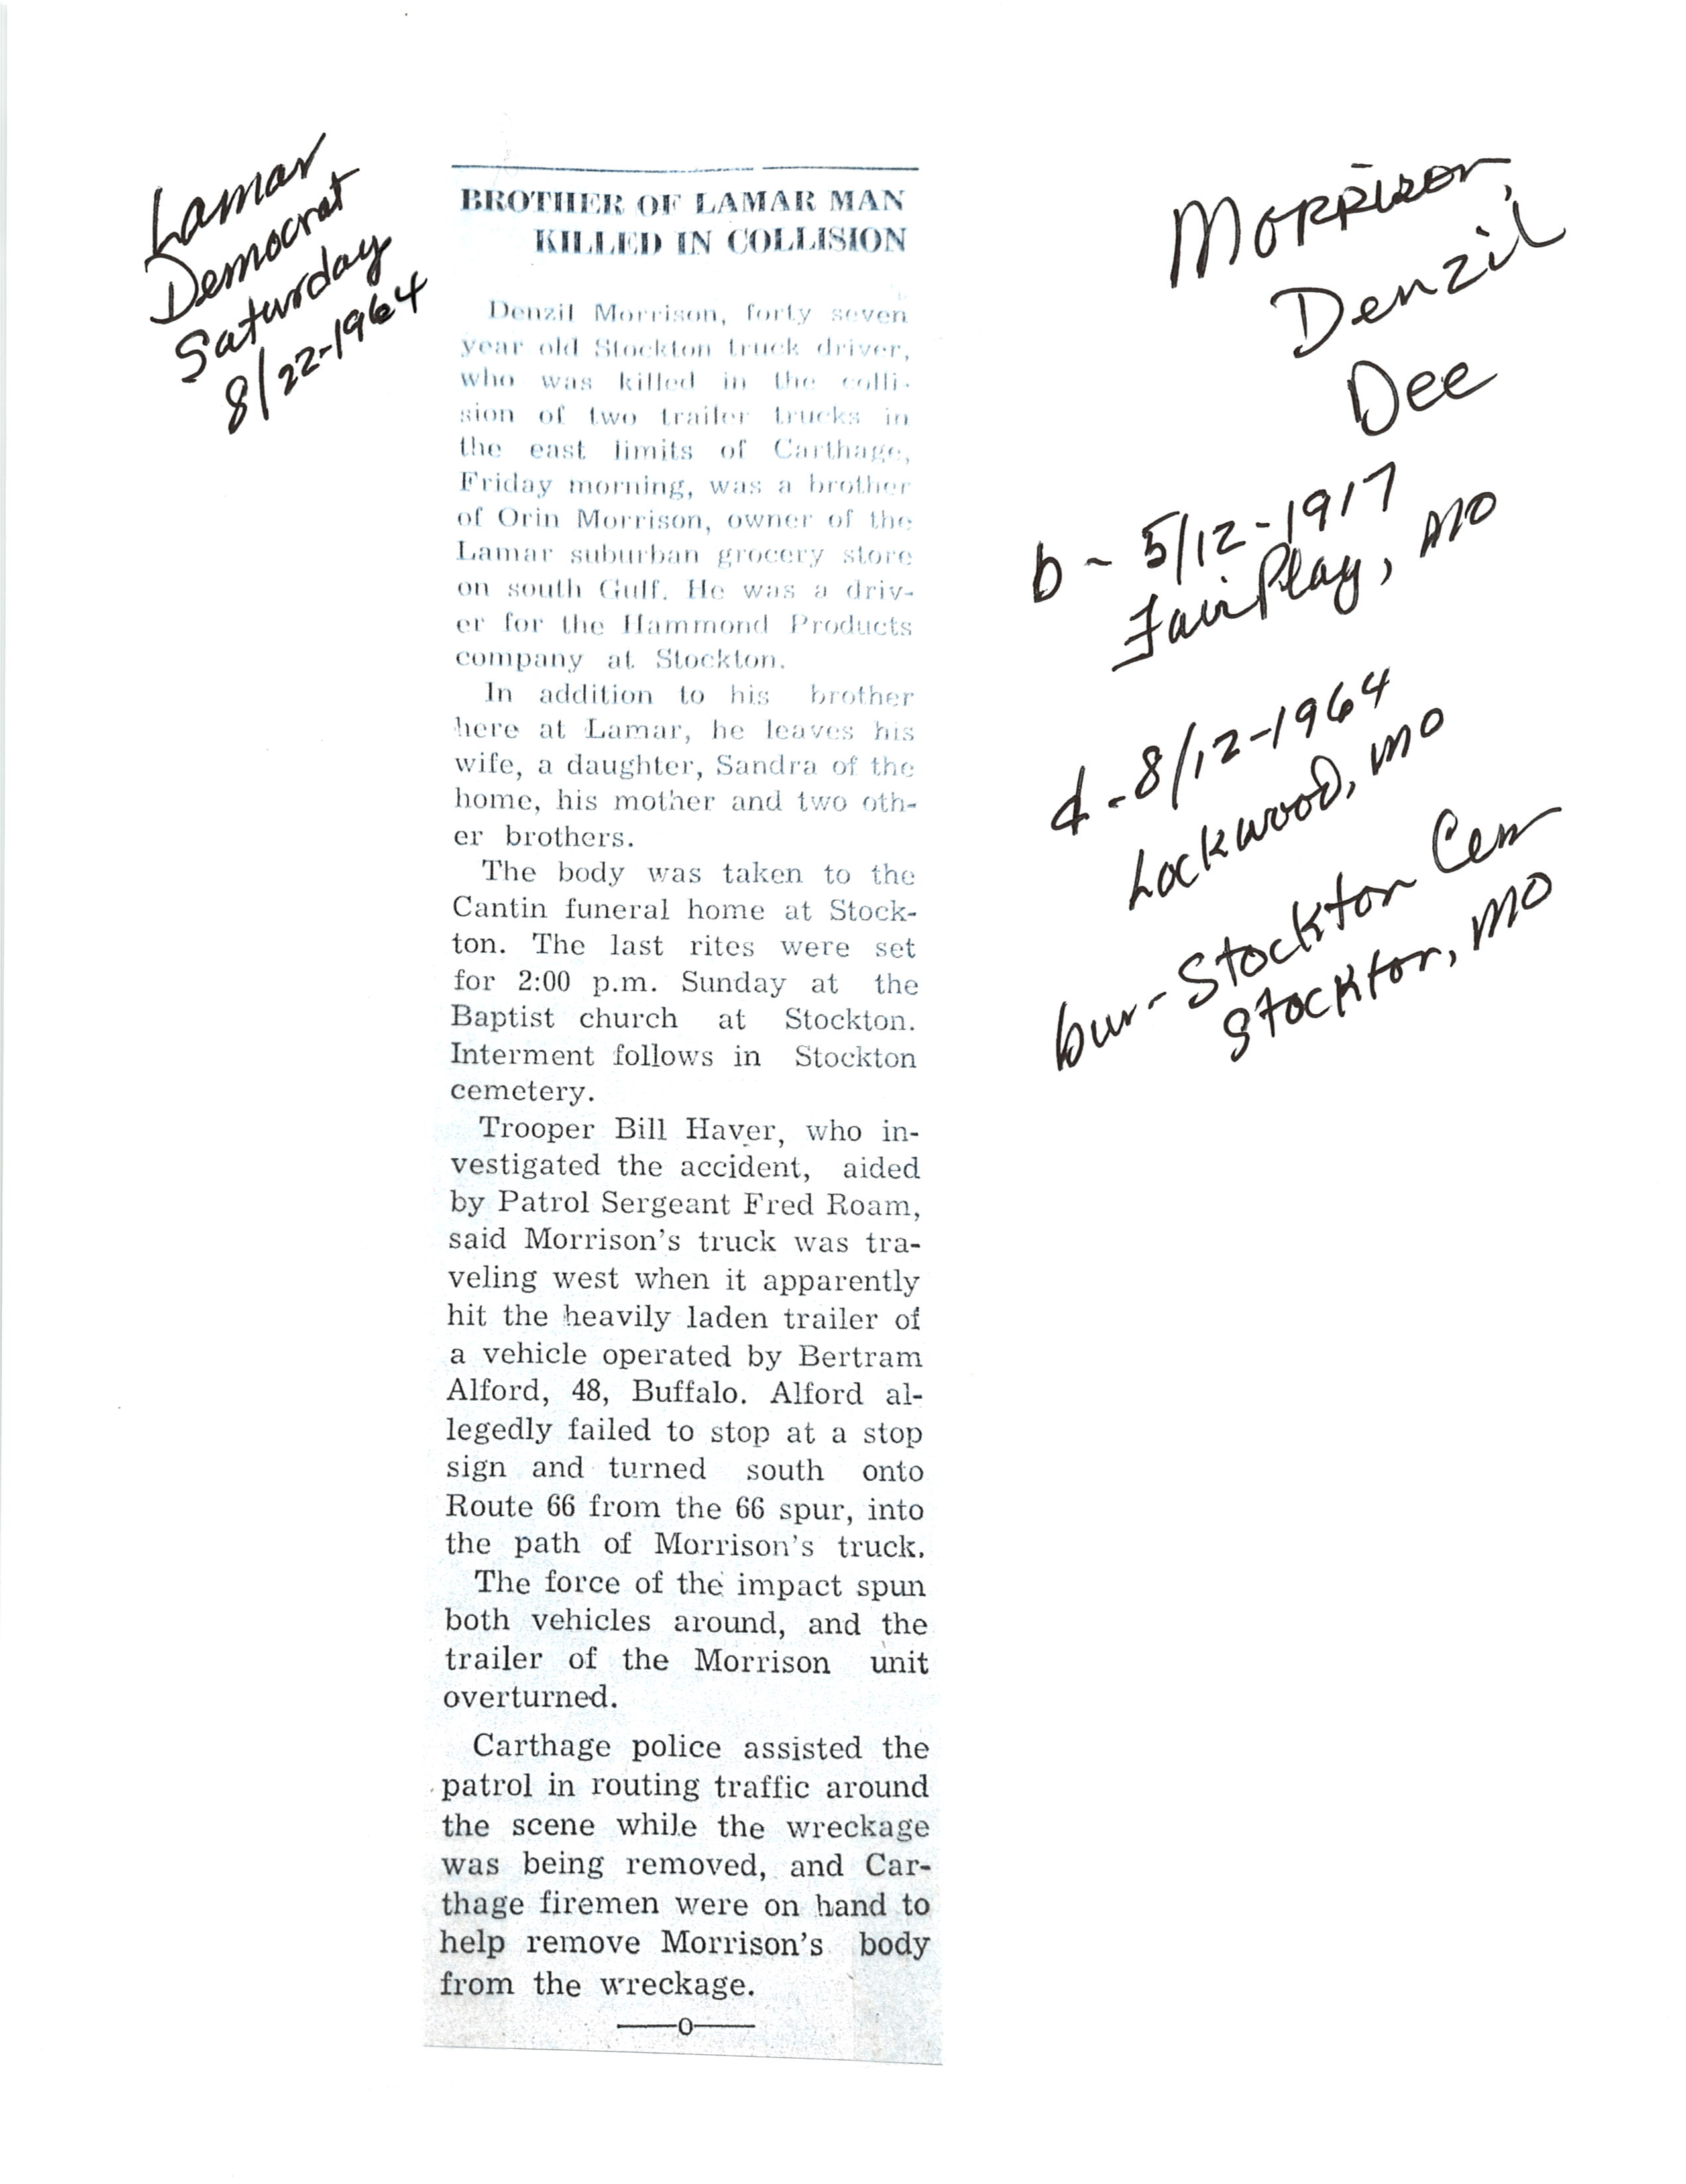 Lamar
Democrat
Saturday
8/22-1964
BROTHER OF LAMAR MAN
KILLED IN COLLISION
Denzil Morrison, forty seven
year old Stockton truck driver,
who was killed in the colli-
sion of two trailer trucks in
the east limits of Carthage,
Friday morning, was a brother
of Orin Morrison, owner of the
Lamar suburban grocery store
on south Gulf. He was a driv-
er for the Hammond Products
company at Stockton.
In addition to his brother
here at Lamar, he leaves his
wife, a daughter, Sandra of the
home, his mother and two oth-
er brothers.
The body was taken to the
Cantin funeral home at Stock-
ton. The last rites were set
for 2:00 p.m. Sunday at the
Baptist church at Stockton.
Interment follows in Stockton
cemetery.
Trooper Bill Haver, who in-
vestigated the accident, aided
by Patrol Sergeant Fred Roam,
said Morrison's truck was tra-
veling west when it apparently
hit the heavily laden trailer of
a vehicle operated by Bertram
Alford, 48, Buffalo. Alford al-
legedly failed to stop at a stop
sign and turned south onto
Route 66 from the 66 spur, into
the path of Morrison's truck.
The force of the impact spun
both vehicles around, and the
trailer of the Morrison unit
overturned.
Carthage police assisted the
patrol in routing traffic around
the scene while the wreckage
was being removed, and Car-
thage firemen were on hand to
help remove Morrison's body
from the wreckage.
—o—
Morrison,
Denzil
Dee
b - 5/12-1917
Fair Play, MO
d - 8/12-1964
Lockwood, MO
bur - Stockton Cem
Stockton, MO